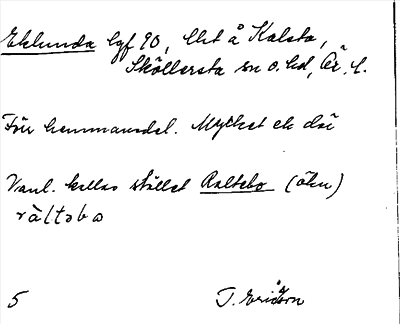 Eklunda lgf 90, llet å Kalsta,
Sköllersta sn o. hd, Är. l.
Förr hemmansdel. Mycket ek där
Vanl. kallas stället Raltebo (ökn)
ràltəbo
5 T. Ericsson